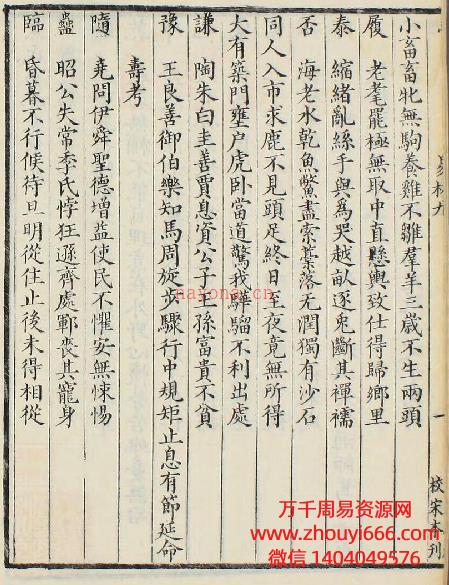 小畜畜牝無駒養雞不雛羣羊三歲不生兩頭
履　老耄罷極無取中直懸輿致仕得歸鄉里
泰　縮緒亂絲手與為哭越畝逐兎斷其襌襦
否　海老水乾魚鱉盡索藁落无潤獨有沙石
同人入市求鹿不見頭足終日至夜竟無所得
大有築門壅戶虎卧當道驚我驊騮不利出處
謙　陶朱白圭善賈息資公子王孫富貴不貧
豫　王良善御伯樂知馬周旋步驟行中規矩止息有節延命
壽考
隨　堯問伊舜聖德增益使民不懼安無悚惕
蠱　昭公失常季氏悖狂遜齊處鄆喪其寵身
臨　昏暮不行候待旦明從住止後未得相從
易林九
一
校宋本刊
nayona.cn
万千周易资源网
www.zhouyi666.com
微信 1404049576